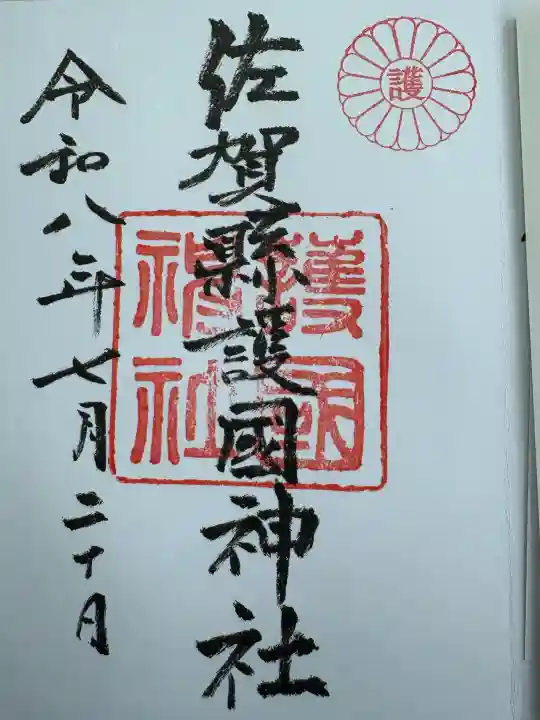 護
佐賀縣護國神社
護國
神社
令和八年七月二十日